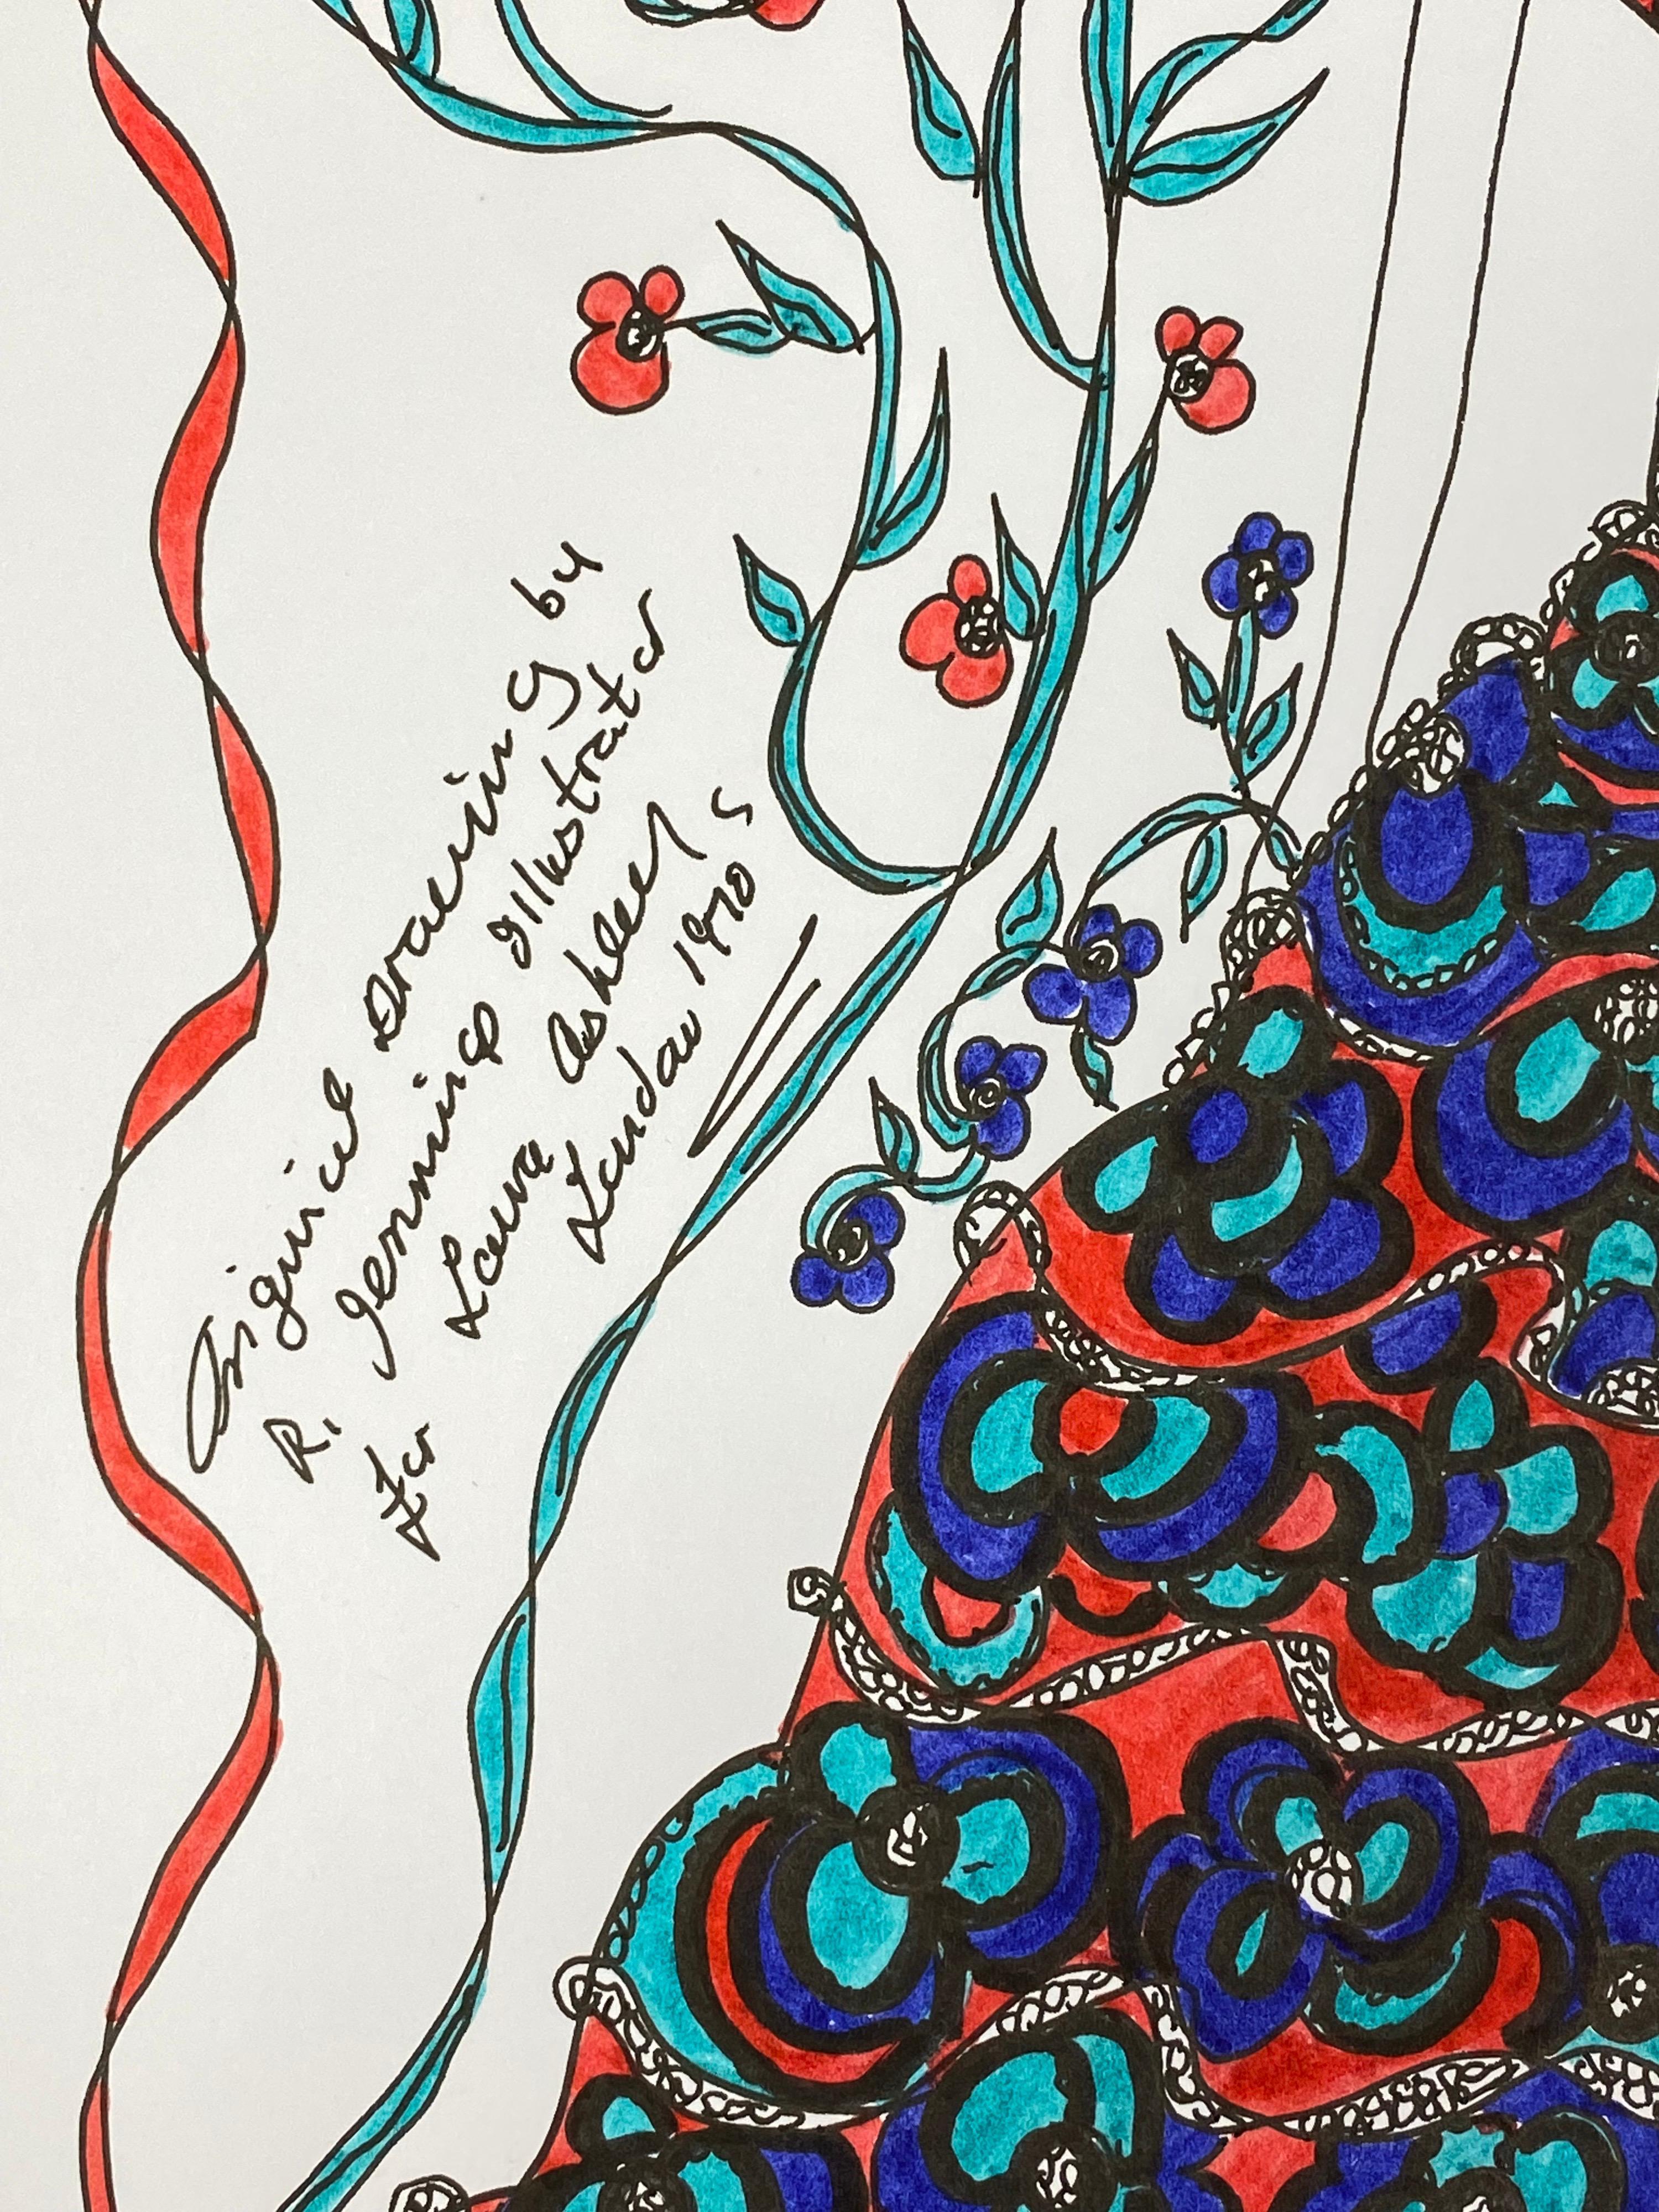 Original Drawing by
R. Jennings Illustrator
for Laura Ashley
London 1970s